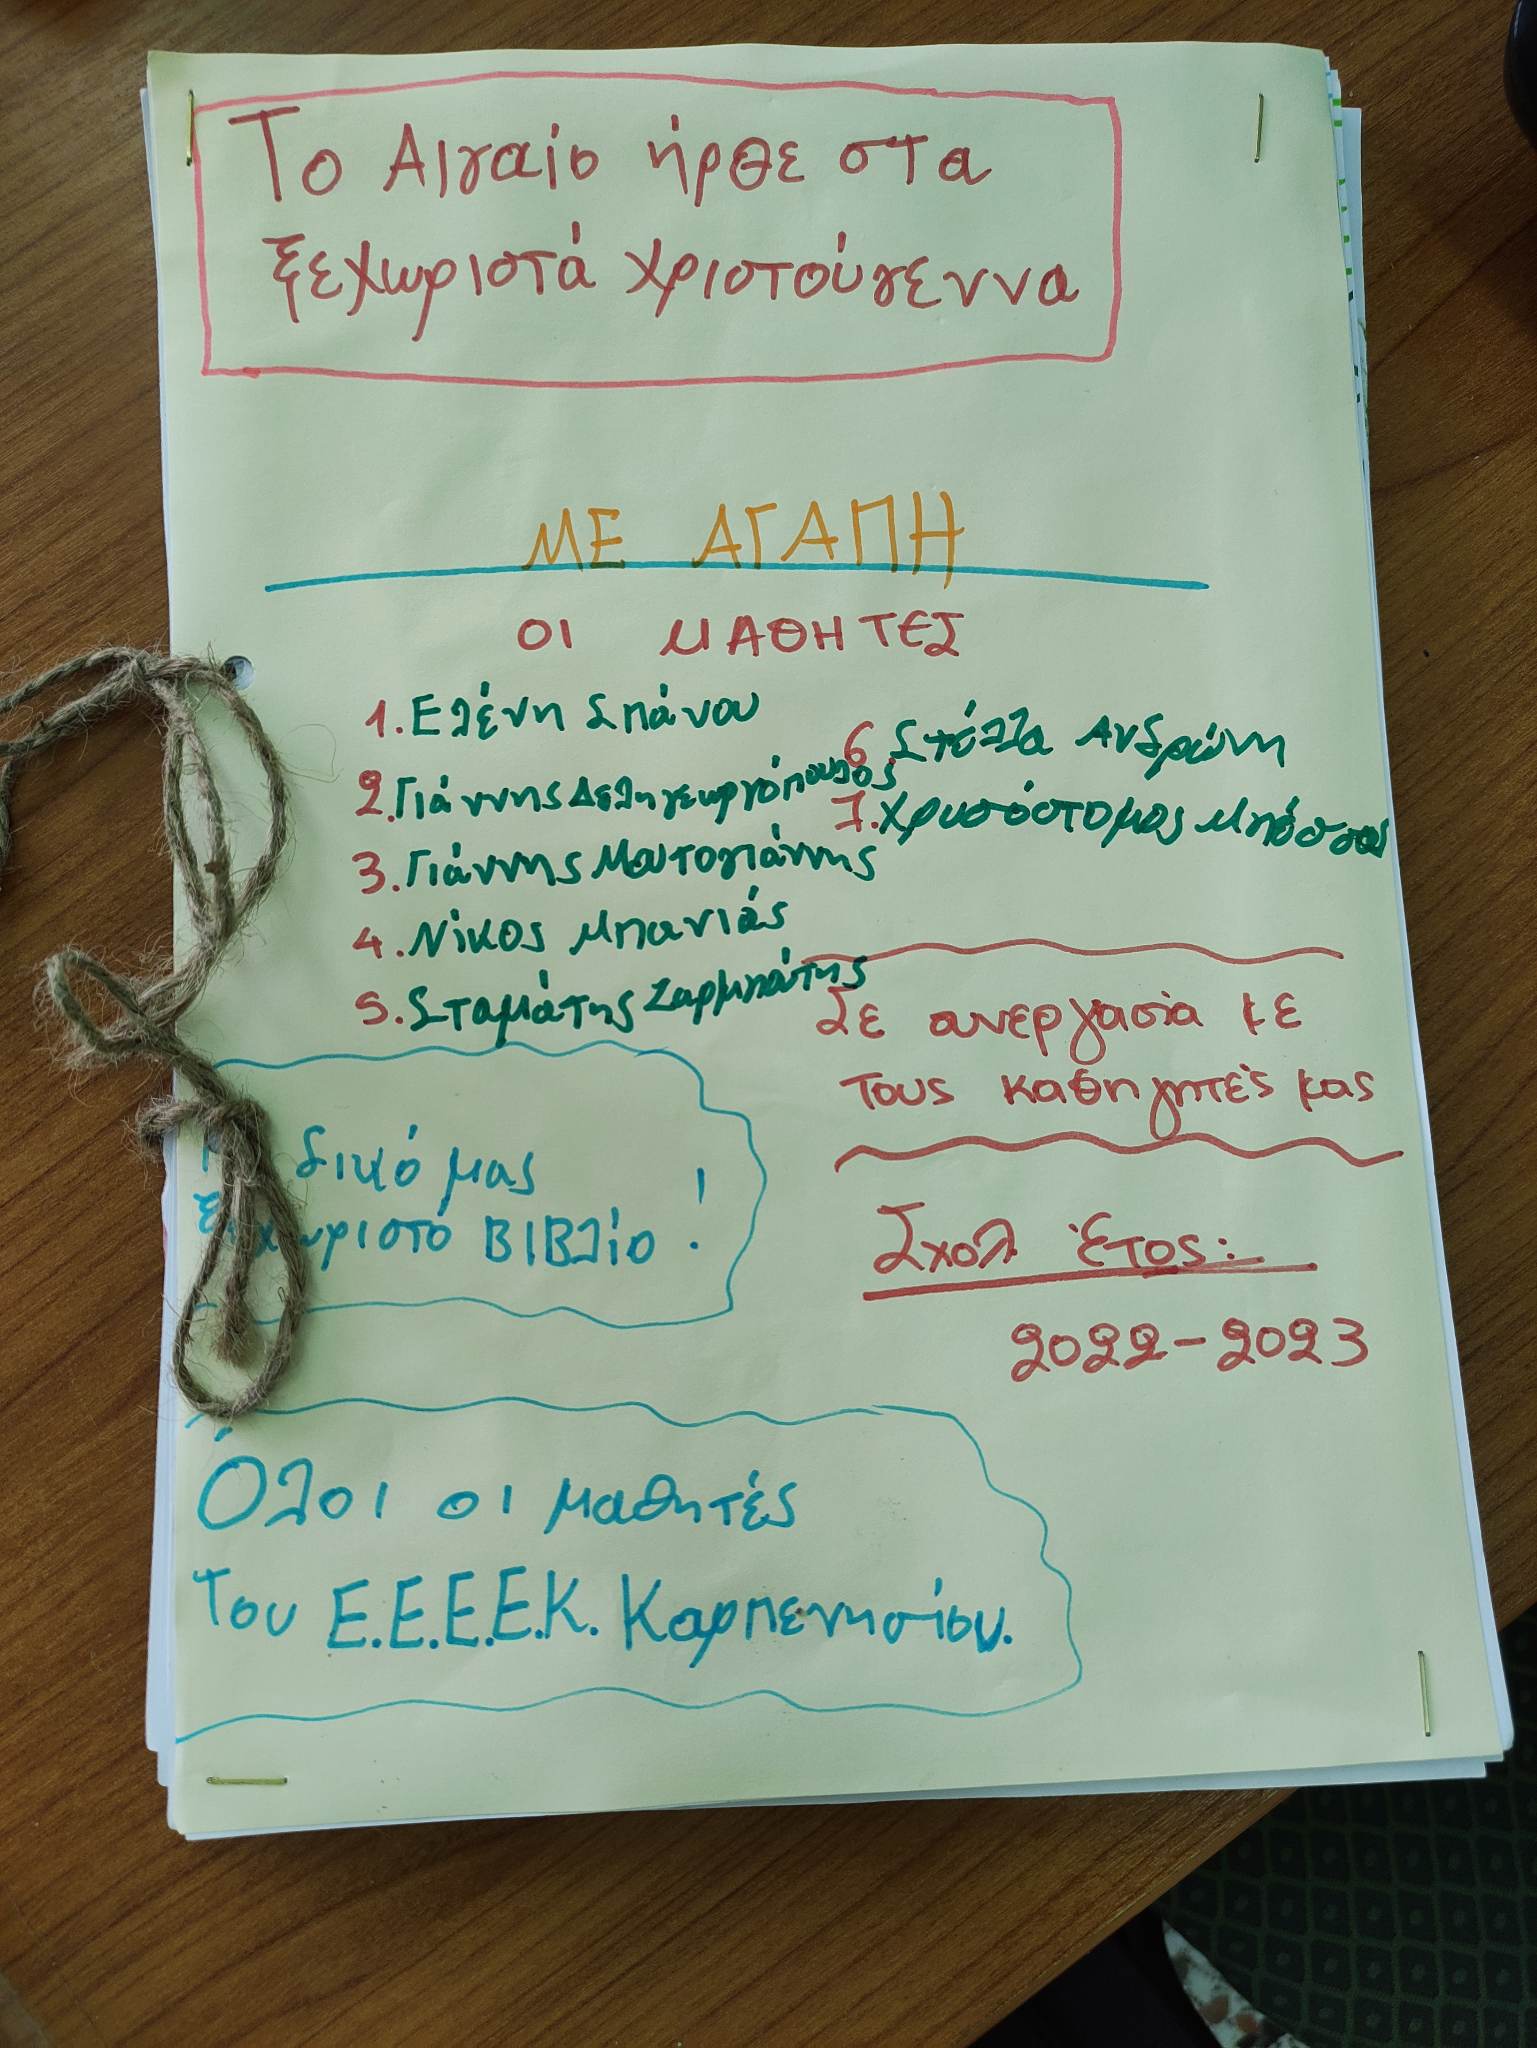 Το Αιγαίο ήρθε στα
ξεχωριστά Χριστούγεννα
ΜΕ ΑΓΑΠΗ
ΟΙ ΜΑΘΗΤΕΣ
1. Ελένη Σπάνου
2. Γιάννης Δεληγεωργόπουλος
3. Γιάννης Ματογιάννης
4. Νίκος Μπανιάς
5. Σταμάτης Ζαρμπάτης
6. Στέλλα Ανδρώνη
7. Χρυσόστομος Μπόσσας
Σε ανεργασία με
τους καθηγητές μας
δικό μας
ξεχωριστό ΒΙΒλίο !
Σχολ Έτος:
2022-2023
Όλοι οι μαθητές
του Ε.Ε.Ε.Ε.Κ. Καρπενησίου.